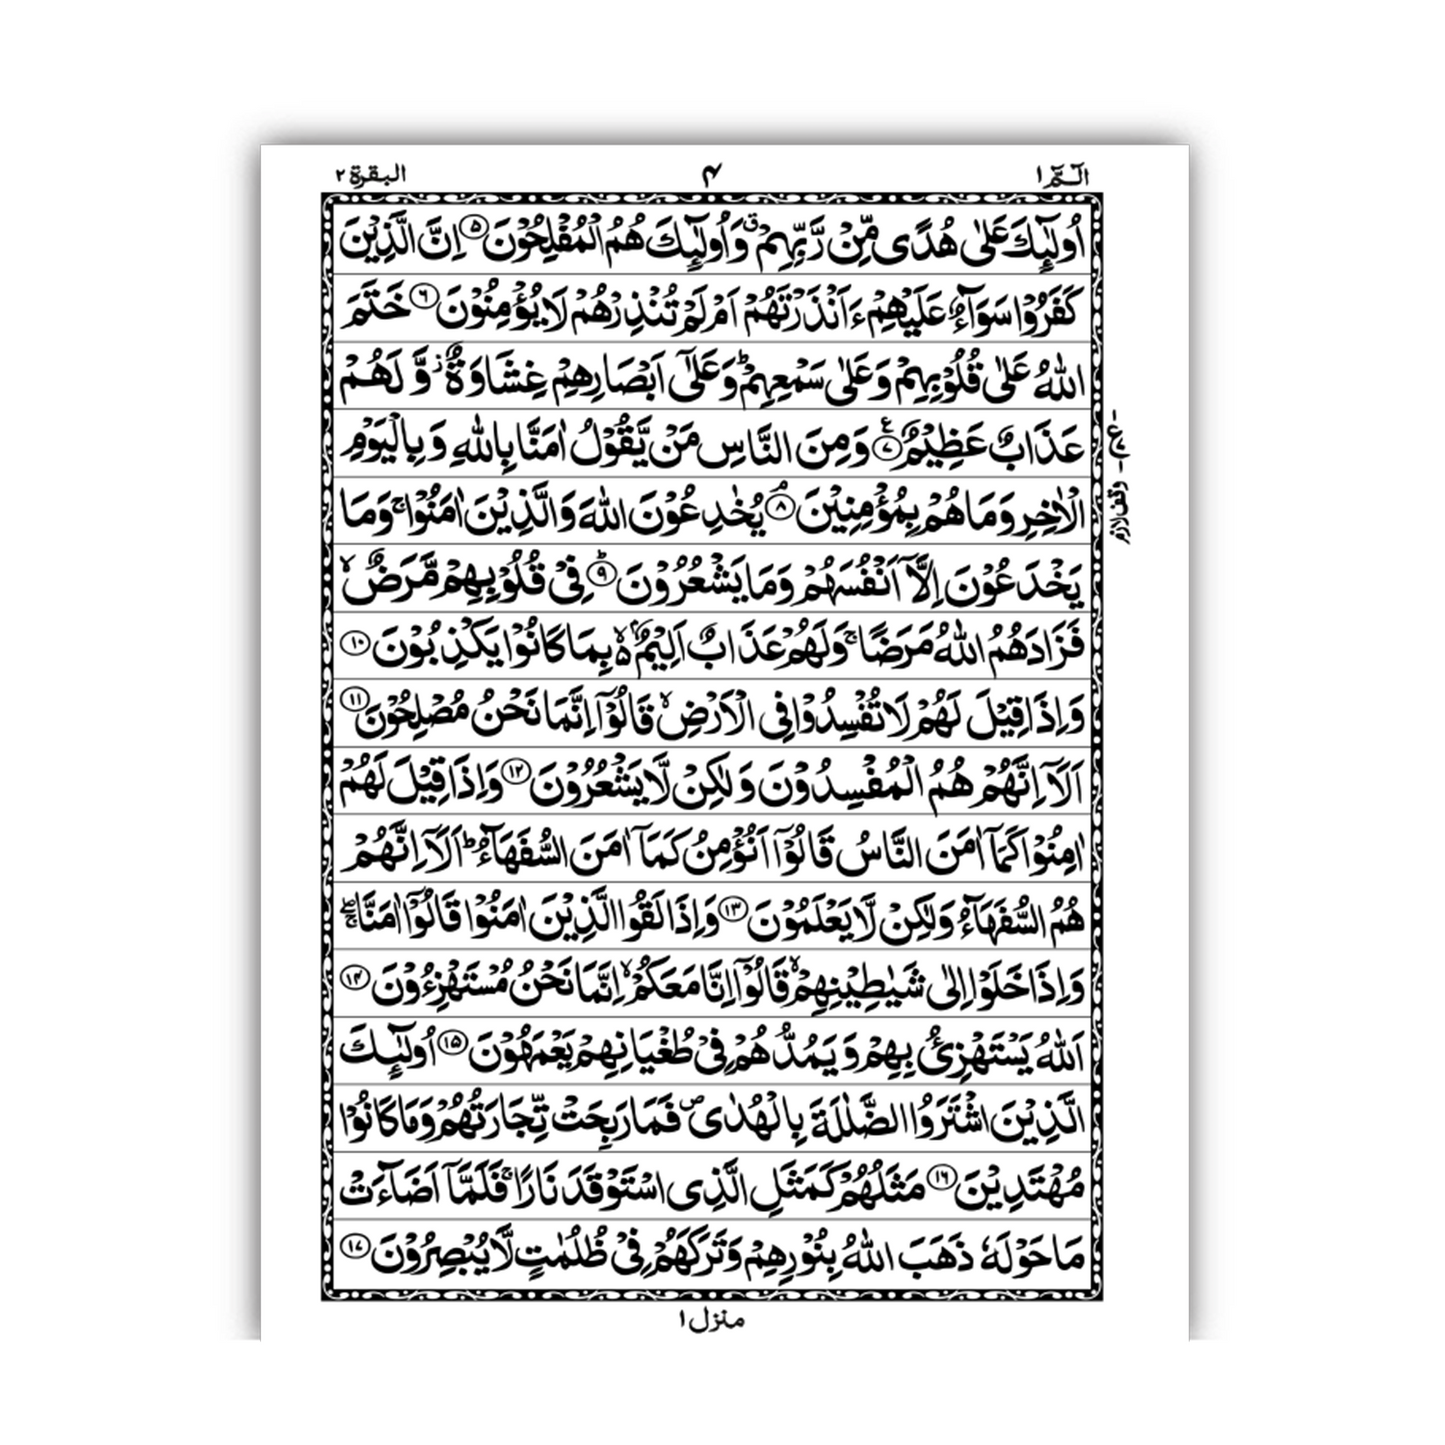 الٓمّٓ ١
۴
البقرة ٢
اُولٰٓئِكَ عَلٰى هُدًى مِّنْ رَّبِّهِمْ ۗ وَاُولٰٓئِكَ هُمُ الْمُفْلِحُوْنَ ۵ اِنَّ الَّذِيْنَ
كَفَرُوْا سَوَآءٌ عَلَيْهِمْ ءَاَنْذَرْتَهُمْ اَمْ لَمْ تُنْذِرْهُمْ لَا يُؤْمِنُوْنَ ۶ خَتَمَ
اللّٰهُ عَلٰى قُلُوْبِهِمْ وَعَلٰى سَمْعِهِمْ ؕ وَعَلٰٓى اَبْصَارِهِمْ غِشَاوَةٌ ز وَّ لَهُمْ
عَذَابٌ عَظِيْمٌ ۷ ع وَمِنَ النَّاسِ مَنْ يَّقُوْلُ اٰمَنَّا بِاللّٰهِ وَبِالْيَوْمِ
الْاٰخِرِ وَمَا هُمْ بِمُؤْمِنِيْنَ ۘ ۸ يُخٰدِعُوْنَ اللّٰهَ وَالَّذِيْنَ اٰمَنُوْا ۚ وَمَا
يَخْدَعُوْنَ اِلَّآ اَنْفُسَهُمْ وَمَا يَشْعُرُوْنَ ؕ ۹ فِىْ قُلُوْبِهِمْ مَّرَضٌ ۙ
فَزَادَهُمُ اللّٰهُ مَرَضًا ۚ وَلَهُمْ عَذَابٌ اَلِيْمٌ ۢ ۙ بِمَا كَانُوْا يَكْذِبُوْنَ ۱۰
وَاِذَا قِيْلَ لَهُمْ لَا تُفْسِدُوْا فِى الْاَرْضِ ۙ قَالُوْٓا اِنَّمَا نَحْنُ مُصْلِحُوْنَ ۱۱
اَلَآ اِنَّهُمْ هُمُ الْمُفْسِدُوْنَ وَلٰكِنْ لَّا يَشْعُرُوْنَ ۱۲ وَاِذَا قِيْلَ لَهُمْ
اٰمِنُوْا كَمَآ اٰمَنَ النَّاسُ قَالُوْٓا اَنُؤْمِنُ كَمَآ اٰمَنَ السُّفَهَآءُ ؕ اَلَآ اِنَّهُمْ
هُمُ السُّفَهَآءُ وَلٰكِنْ لَّا يَعْلَمُوْنَ ۱۳ وَاِذَا لَقُوا الَّذِيْنَ اٰمَنُوْا قَالُوْٓا اٰمَنَّا ۖۚ
وَاِذَا خَلَوْا اِلٰى شَيٰطِيْنِهِمْ ۙ قَالُوْٓا اِنَّا مَعَكُمْ ۙ اِنَّمَا نَحْنُ مُسْتَهْزِءُوْنَ ۱۴
اَللّٰهُ يَسْتَهْزِئُ بِهِمْ وَيَمُدُّهُمْ فِىْ طُغْيَانِهِمْ يَعْمَهُوْنَ ۱۵ اُولٰٓئِكَ
الَّذِيْنَ اشْتَرَوُا الضَّلٰلَةَ بِالْهُدٰى ص فَمَا رَبِحَتْ تِّجَارَتُهُمْ وَمَا كَانُوْا
مُهْتَدِيْنَ ۱۶ مَثَلُهُمْ كَمَثَلِ الَّذِى اسْتَوْقَدَ نَارًا ۚ فَلَمَّآ اَضَآءَتْ
مَا حَوْلَهٗ ذَهَبَ اللّٰهُ بِنُوْرِهِمْ وَتَرَكَهُمْ فِىْ ظُلُمٰتٍ لَّا يُبْصِرُوْنَ ۱۷
وقف لازم
منزل ١